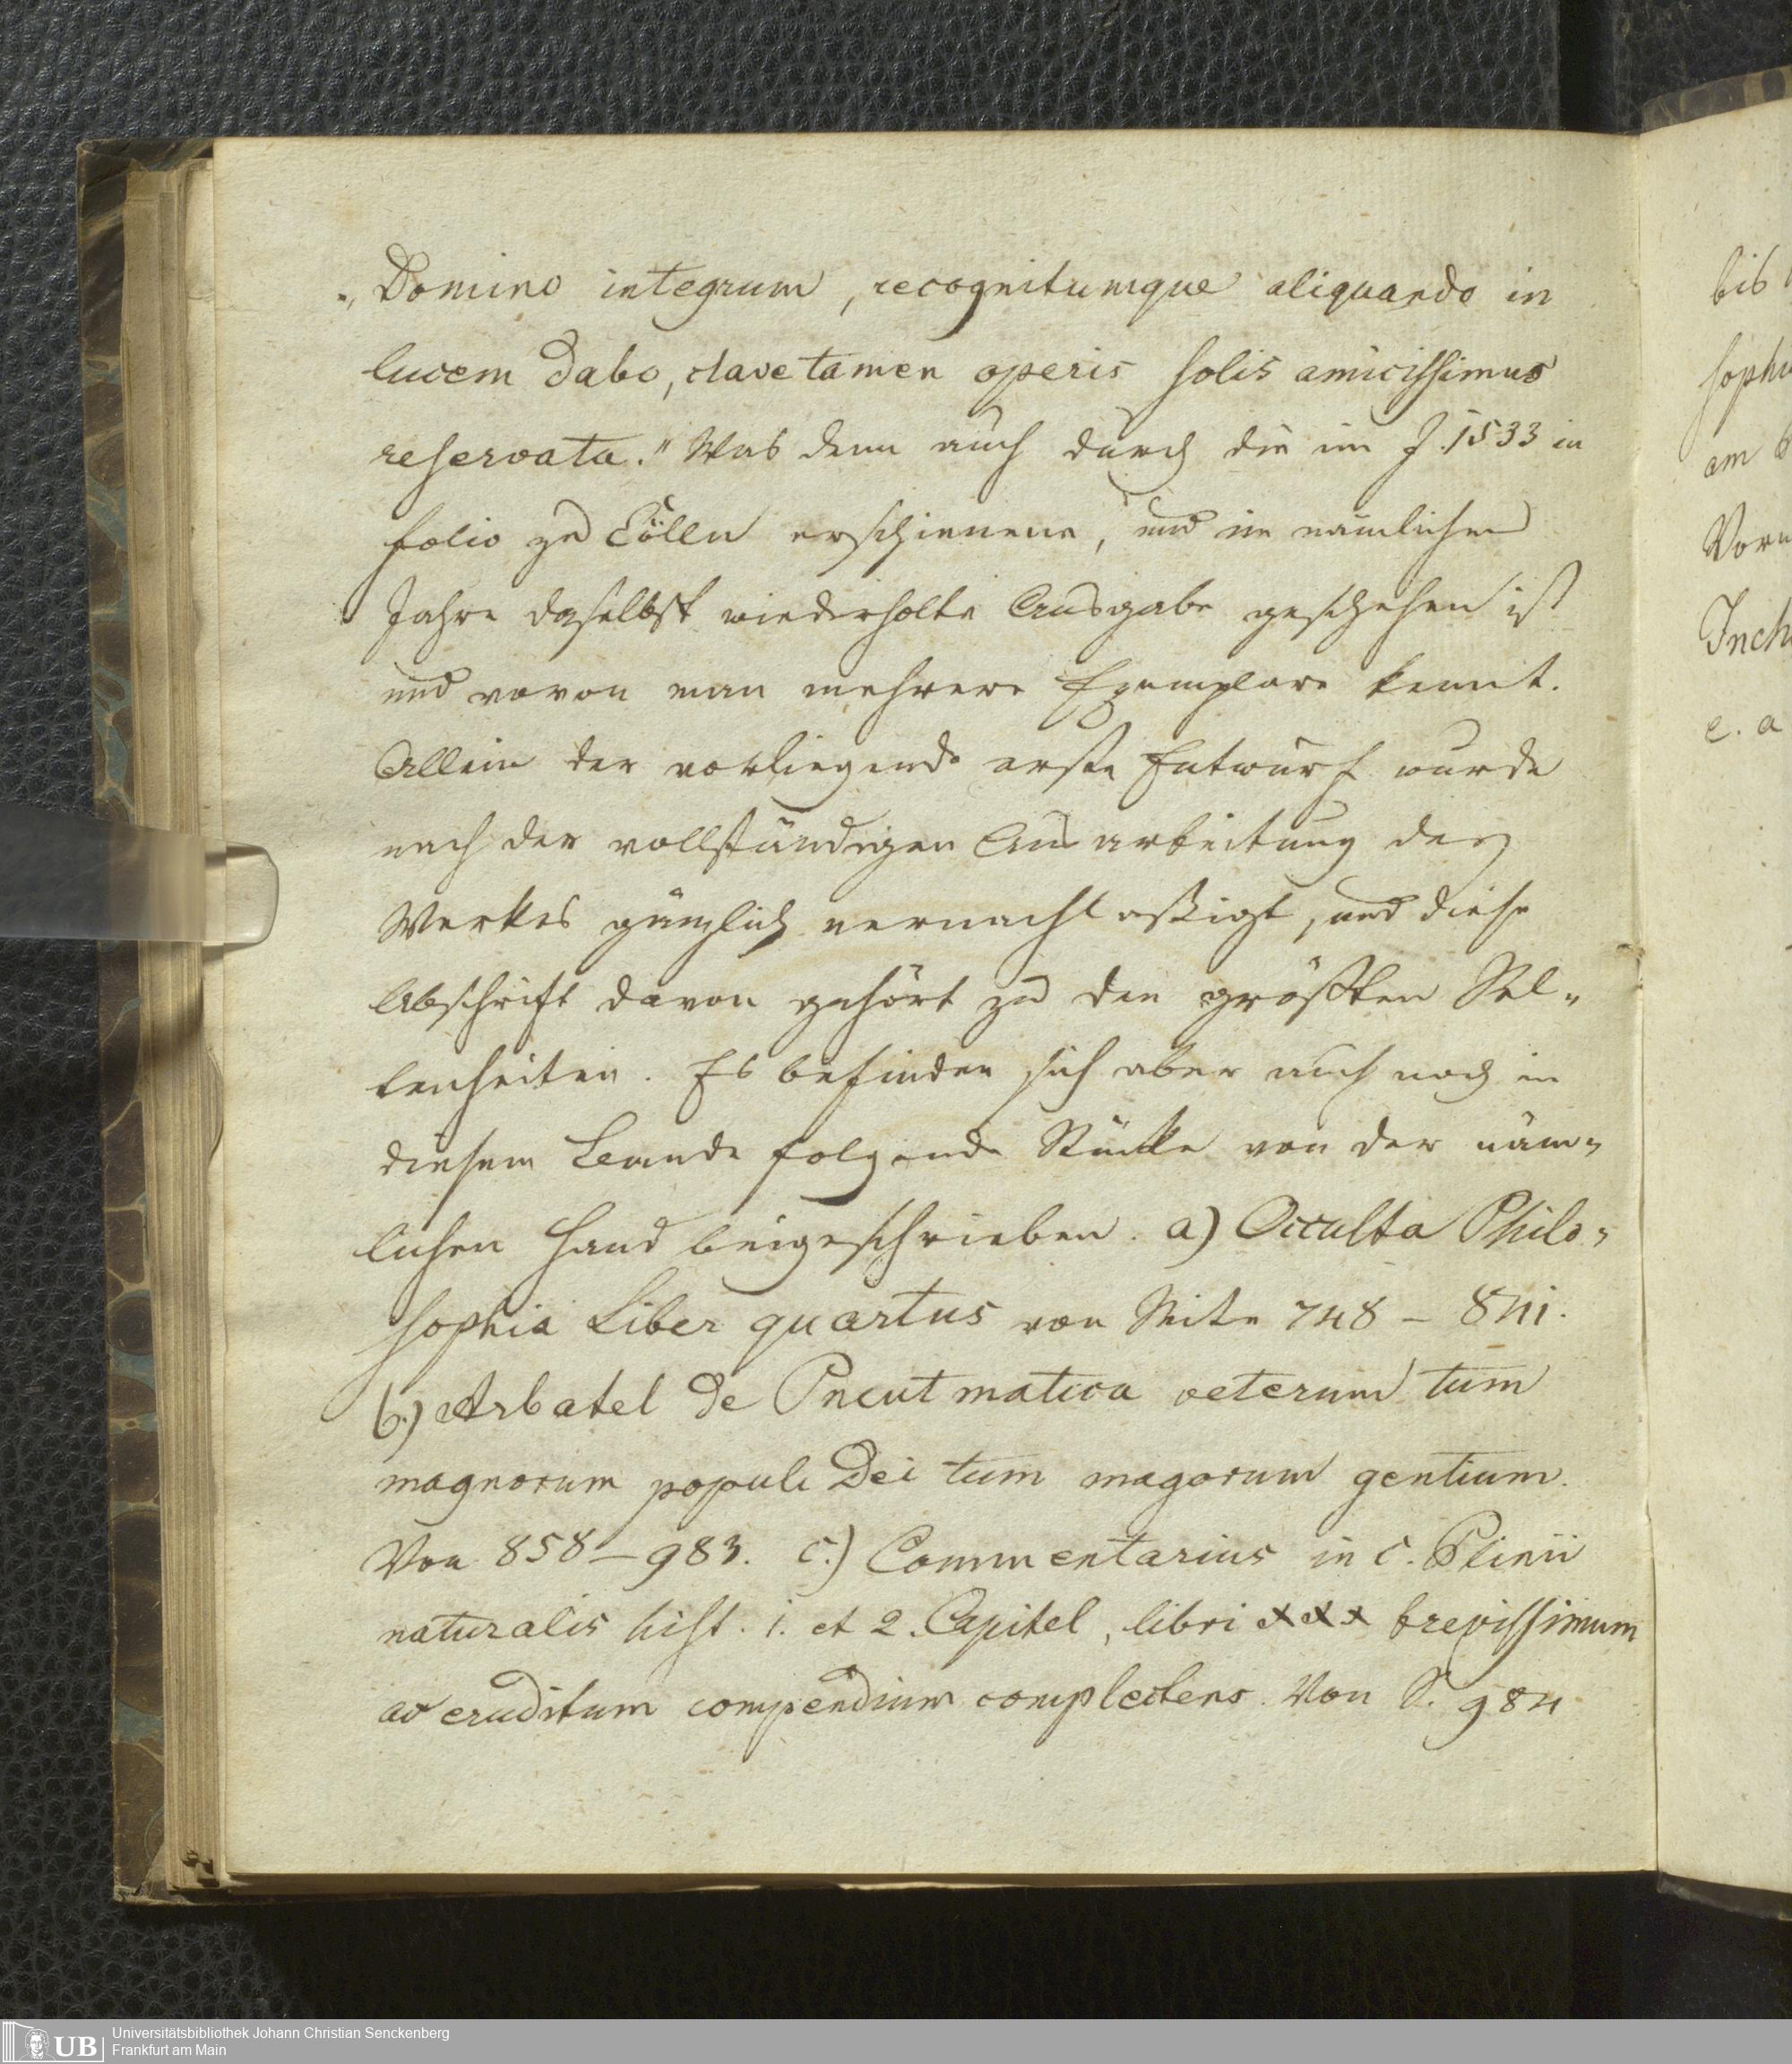 „Domino integrum, recognitumque aliquando in
lucem dabo, clave tamen operis solis amicissimus
reservata." Was denn auch durch die im J. 1533 in
folio zu Cölln erschienene, und im nämlichen
Jahre daselbst wiederholte Ausgabe geschehen ist
und wovon man mehrere Exemplare kennt.
Allein der vorliegende erste Entwurf wurde
nach der vollständigen Ausarbeitung des
Werkes gänzlich vernachlaßigt, und diese
Abschrift davon gehört zu den größten Sel-
tenheiten. Es befinden sich aber auch noch in
diesem Bande folgende Stücke von der näm-
lichen Hand beigeschrieben. a) Occulta Philo-
sophia Liber quartus von Seite 748 – 841.
b.) Arbatel de Pneutmatica veterum tum
magnorum populi Dei tum magorum gentium.
Von 858 – 983. c.) Commentarius in C. Plinii
naturalis hist. 1. et 2. Capitel, libri xxx brevissimum
ac eruditum compendium complectens. Von S. 984
bis
sophi
am
Vor
Inch
e. a
Universitätsbibliothek Johann Christian Senckenberg
Frankfurt am Main
UB